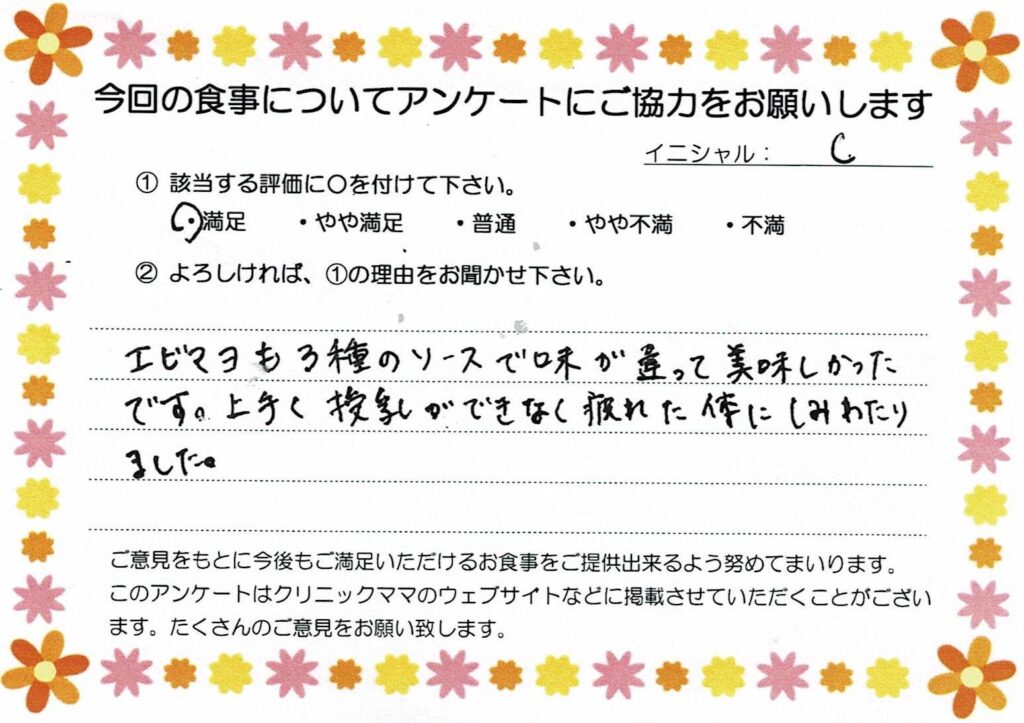 今回の食事についてアンケートにご協力をお願いします
イニシャル： C.
① 該当する評価に〇を付けて下さい。
・満足 ・やや満足 ・普通 ・やや不満 ・不満
② よろしければ、①の理由をお聞かせ下さい。
エビマヨも3種のソースで味が違って美味しかった
です。上手く授乳ができなく疲れた体にしみわたり
ました。
ご意見をもとに今後もご満足いただけるお食事をご提供出来るよう努めてまいります。
このアンケートはクリニックママのウェブサイトなどに掲載させていただくことがござい
ます。たくさんのご意見をお願い致します。